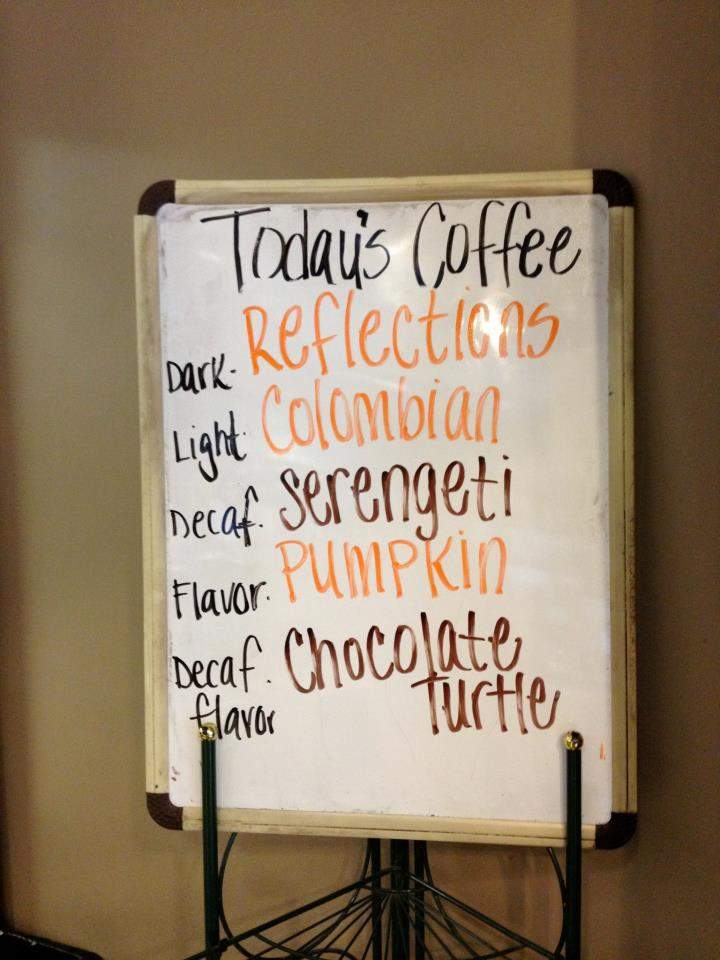 Today's Coffee
Dark. Reflections
Light. Colombian
Decaf. Serengeti
Flavor. Pumpkin
Decaf. Chocolate
flavor Turtle